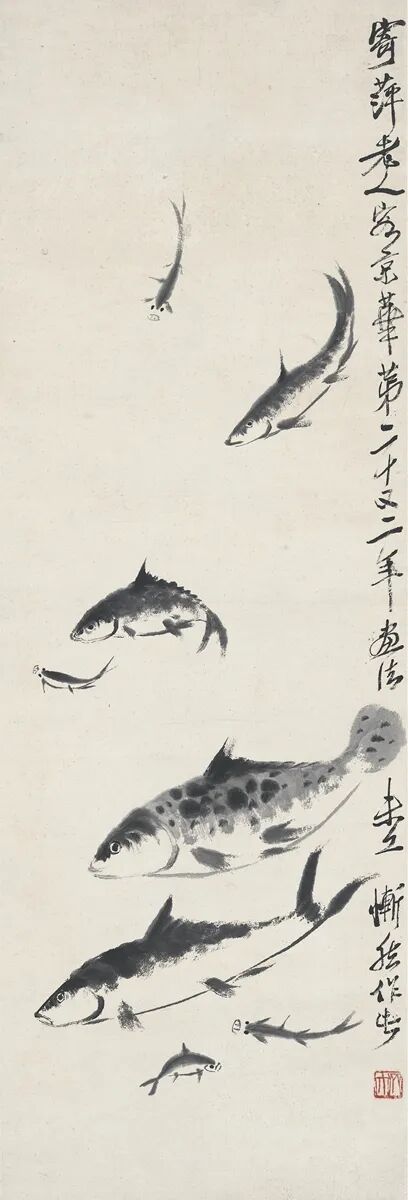 寄萍老人客京華第二十又二年畫法未工慚作